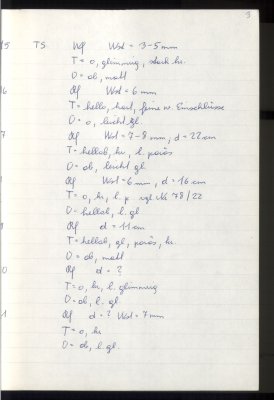 3
5 TS Wf Wst = 3-5 mm
T = o, glimmrig, stark hr.
O = ob, matt
6 Rf Wst = 6 mm
T = hello, hart, feine w. Einschlüsse
O = o, leicht gl.
7 Rf Wst = 7-8 mm, d = 22 cm
T = hellob, hr, l. porös
O = ob, leicht gl.
Rf Wst = 6 mm, d = 16 cm
T = o, hr, l. p. vgl 78/22
O = hellob, l. gl.
Rf d = 11 cm
T = hellob, gl, porös, hr.
O = ob, matt
0 Rf d = ?
T = o, hr, l. glimmrig
O = ob, l. gl.
1 Rf d = ? Wst = 7 mm
T = o, hr
O = ob, l. gl.